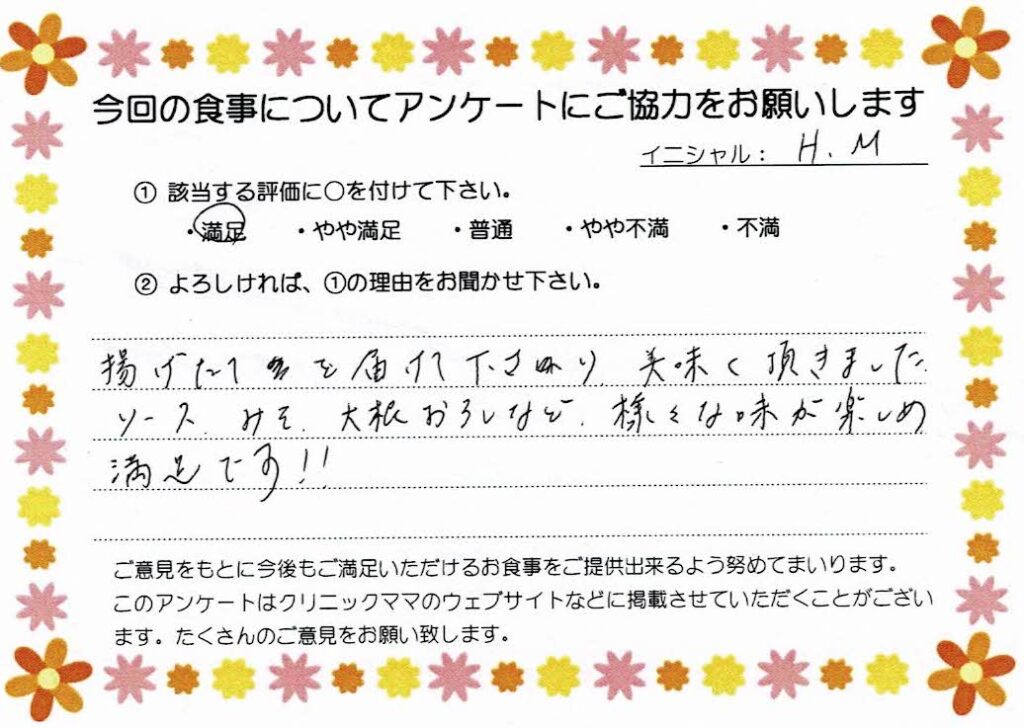 今回の食事についてアンケートにご協力をお願いします
イニシャル： H. M
① 該当する評価に○を付けて下さい。
・満足 ・やや満足 ・普通 ・やや不満 ・不満
② よろしければ、①の理由をお聞かせ下さい。
揚げたてを届けて下さり、美味く頂きました。
ソース、みそ、大根おろしなど、様々な味が楽しめ
満足です!!
ご意見をもとに今後もご満足いただけるお食事をご提供出来るよう努めてまいります。
このアンケートはクリニックママのウェブサイトなどに掲載させていただくことがござい
ます。たくさんのご意見をお願い致します。